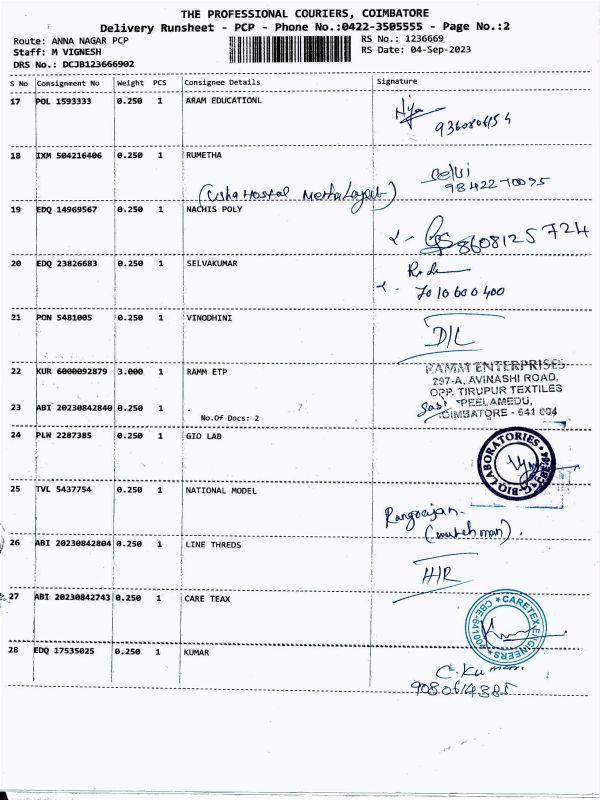 THE PROFESSIONAL COURIERS, COIMBATORE
Delivery Runsheet - PCP - Phone No.:0422-3505555 - Page No.:2
Route: ANNA NAGAR PCP
RS No.: 1236669
Staff: M VIGNESH
RS Date: 04-Sep-2023
DRS No.: DCJB123666902
S No Consignment No Weight PCS Consignee Details Signature
17 POL 1593333 0.250 1 ARAM EDUCATIONL
18 IXM 504216406 0.250 1 RUMETHA
Selvi
9842270095
(Usha Hostal Metha Layout)
19 EDQ 14969567 0.250 1 NACHIS POLY
8608125724
20 EDQ 23826683 0.250 1 SELVAKUMAR
7010600400
21 PON 5481005 0.250 1 VINODHINI
D/L
22 KUR 6000092879 3.000 1 RAMM ETP
RAMM ENTERPRISES
297-A, AVINASHI ROAD,
OPP. TIRUPUR TEXTILES
PEELAMEDU,
COIMBATORE - 641 004
23 ABI 20230842840 0.250 1
No.Of Docs: 2
24 PLW 2287385 0.250 1 GIO LAB
G-BIO LABORATORIES
25 TVL 5437754 0.250 1 NATIONAL MODEL
Rangarajan
(watchman).
26 ABI 20230842804 0.250 1 LINE THREDS
H/R
27 ABI 20230842743 0.250 1 CARE TEAX
CARETEX ENGINEERS
28 EDQ 17535025 0.250 1 KUMAR
C. Kumar
9080614385